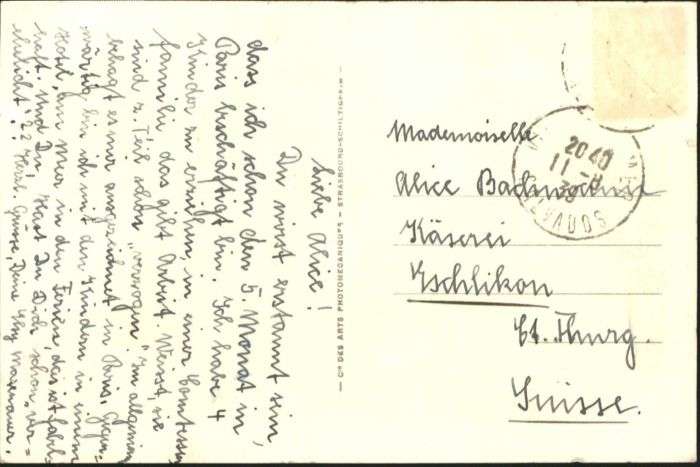 Liebe Alice!
Du wirst erstaunt sein,
dass ich schon den 5. Monat in
Paris beschäftigt bin. Ich habe 4
Kinder zu erziehen, in einer Comtesse
familie das gibt Arbeit. Weisst, sie
sind z. Teil schon "verzogen". Im allgemein
behagt es mir ausgezeichnet in Paris. Gegen-
wärtig bin ich mit den Kindern in einem
Hotel, am Meer in den Ferien, das ist fabel-
haft. Und Du? Hast Du Dich schon "ver-
ehelicht"?? Herzl. Grüsse, Deine
CIE DES ARTS PHOTOMECANIQUES — STRASBOURG-SCHILTIGHEIM —
Mademoiselle
Alice Bachmann
Käserei
Eschlikon
Ct. Thurg.
Suisse.
2040
11 - 8
39
CALVADOS